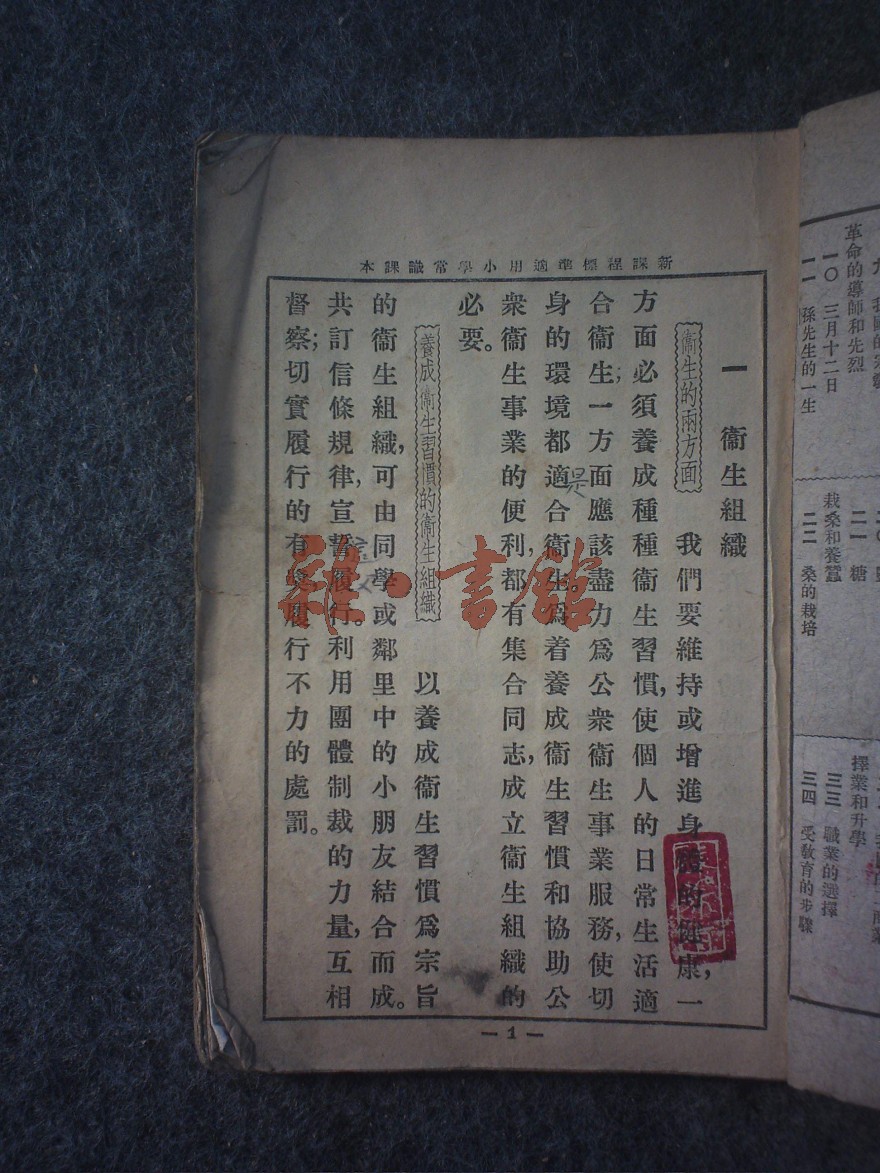 新課程標準適用小學常識課本
一 衞生組織
衞生的兩方面 我們要維持或增進身體的健康,一
方面必須養成種種衞生習慣,使個人的日常生活適
合衞生;一方面應該盡力爲公衆衞生事業服務,使切
身的環境都適合衞生。爲着養成衞生習慣和協助公
是
衆衞生事業的便利,都有集合同志,成立衞生組織的
必要。
養成衞生習慣的衞生組織 以養成衞生習慣爲宗旨
的衞生組織,可由同學或鄰里中的小朋友結合而成。
共訂信條規律,宣誓履行。利用團體制裁的力量,互相
督察;切實履行的有獎,履行不力的處罰。
— 1 —
雜·書館
革命的導師和先烈
一〇 三月十二日
一一 孫先生的一生
二一 糖
栽桑和養蠶
二二 桑的栽培
擇業和升學
三三 職業的選擇
三四 受教育的步驟